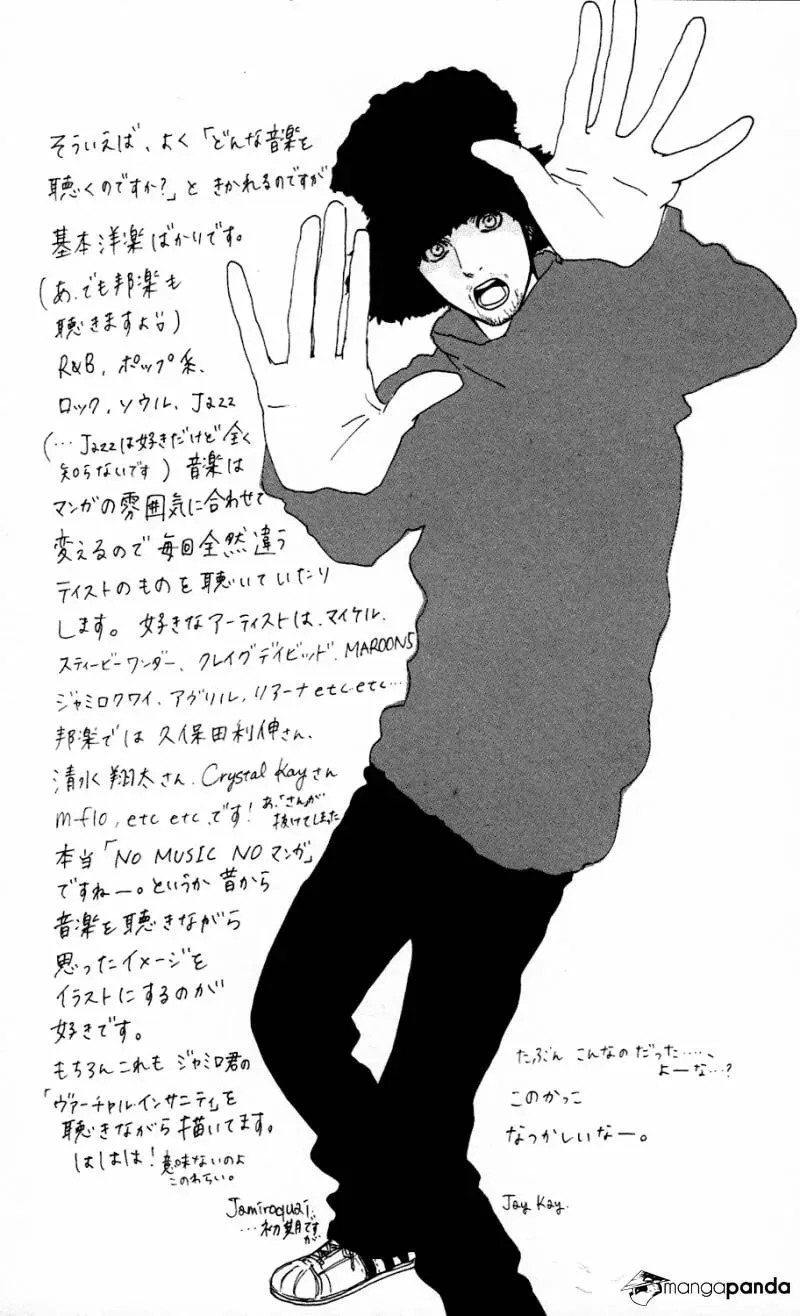 そういえば、よく「どんな音楽を
聴くのですか？」ときかれるのですが
基本洋楽ばかりです。
(あ、でも邦楽も
聴きますよ)
R&B, ポップ系、
ロック, ソウル、Jazz
(…Jazzは好きだけど全く
知らないです) 音楽は
マンガの雰囲気に合わせて
変えるので毎回全然違う
テイストのものを聴いていたり
します。好きなアーティストは、マイケル、
スティービーワンダー、クレイグデイビッド、MAROON5
ジャミロクワイ、アヴリル,リアーナetc.etc…
邦楽では久保田利伸さん、
清水翔太さん、Crystal Kayさん
m-flo, etc etc、です！
あ、「さん」が
抜けてしまった
本当「NO MUSIC NO マンガ」
ですねー。というか昔から
音楽を聴きながら
思ったイメージを
イラストにするのが
好きです。
もちろんこれもジャミロ君の
「ヴァーチャル・インサニティ」を
聴きながら描いてます。
はははは！
意味ないのよ
このわらい。
たぶん こんなのだった……、
よーな…？
このかっこ
なつかしいなー。
Jamiroquai.
…初期ですが
Jay Kay.
mangapanda